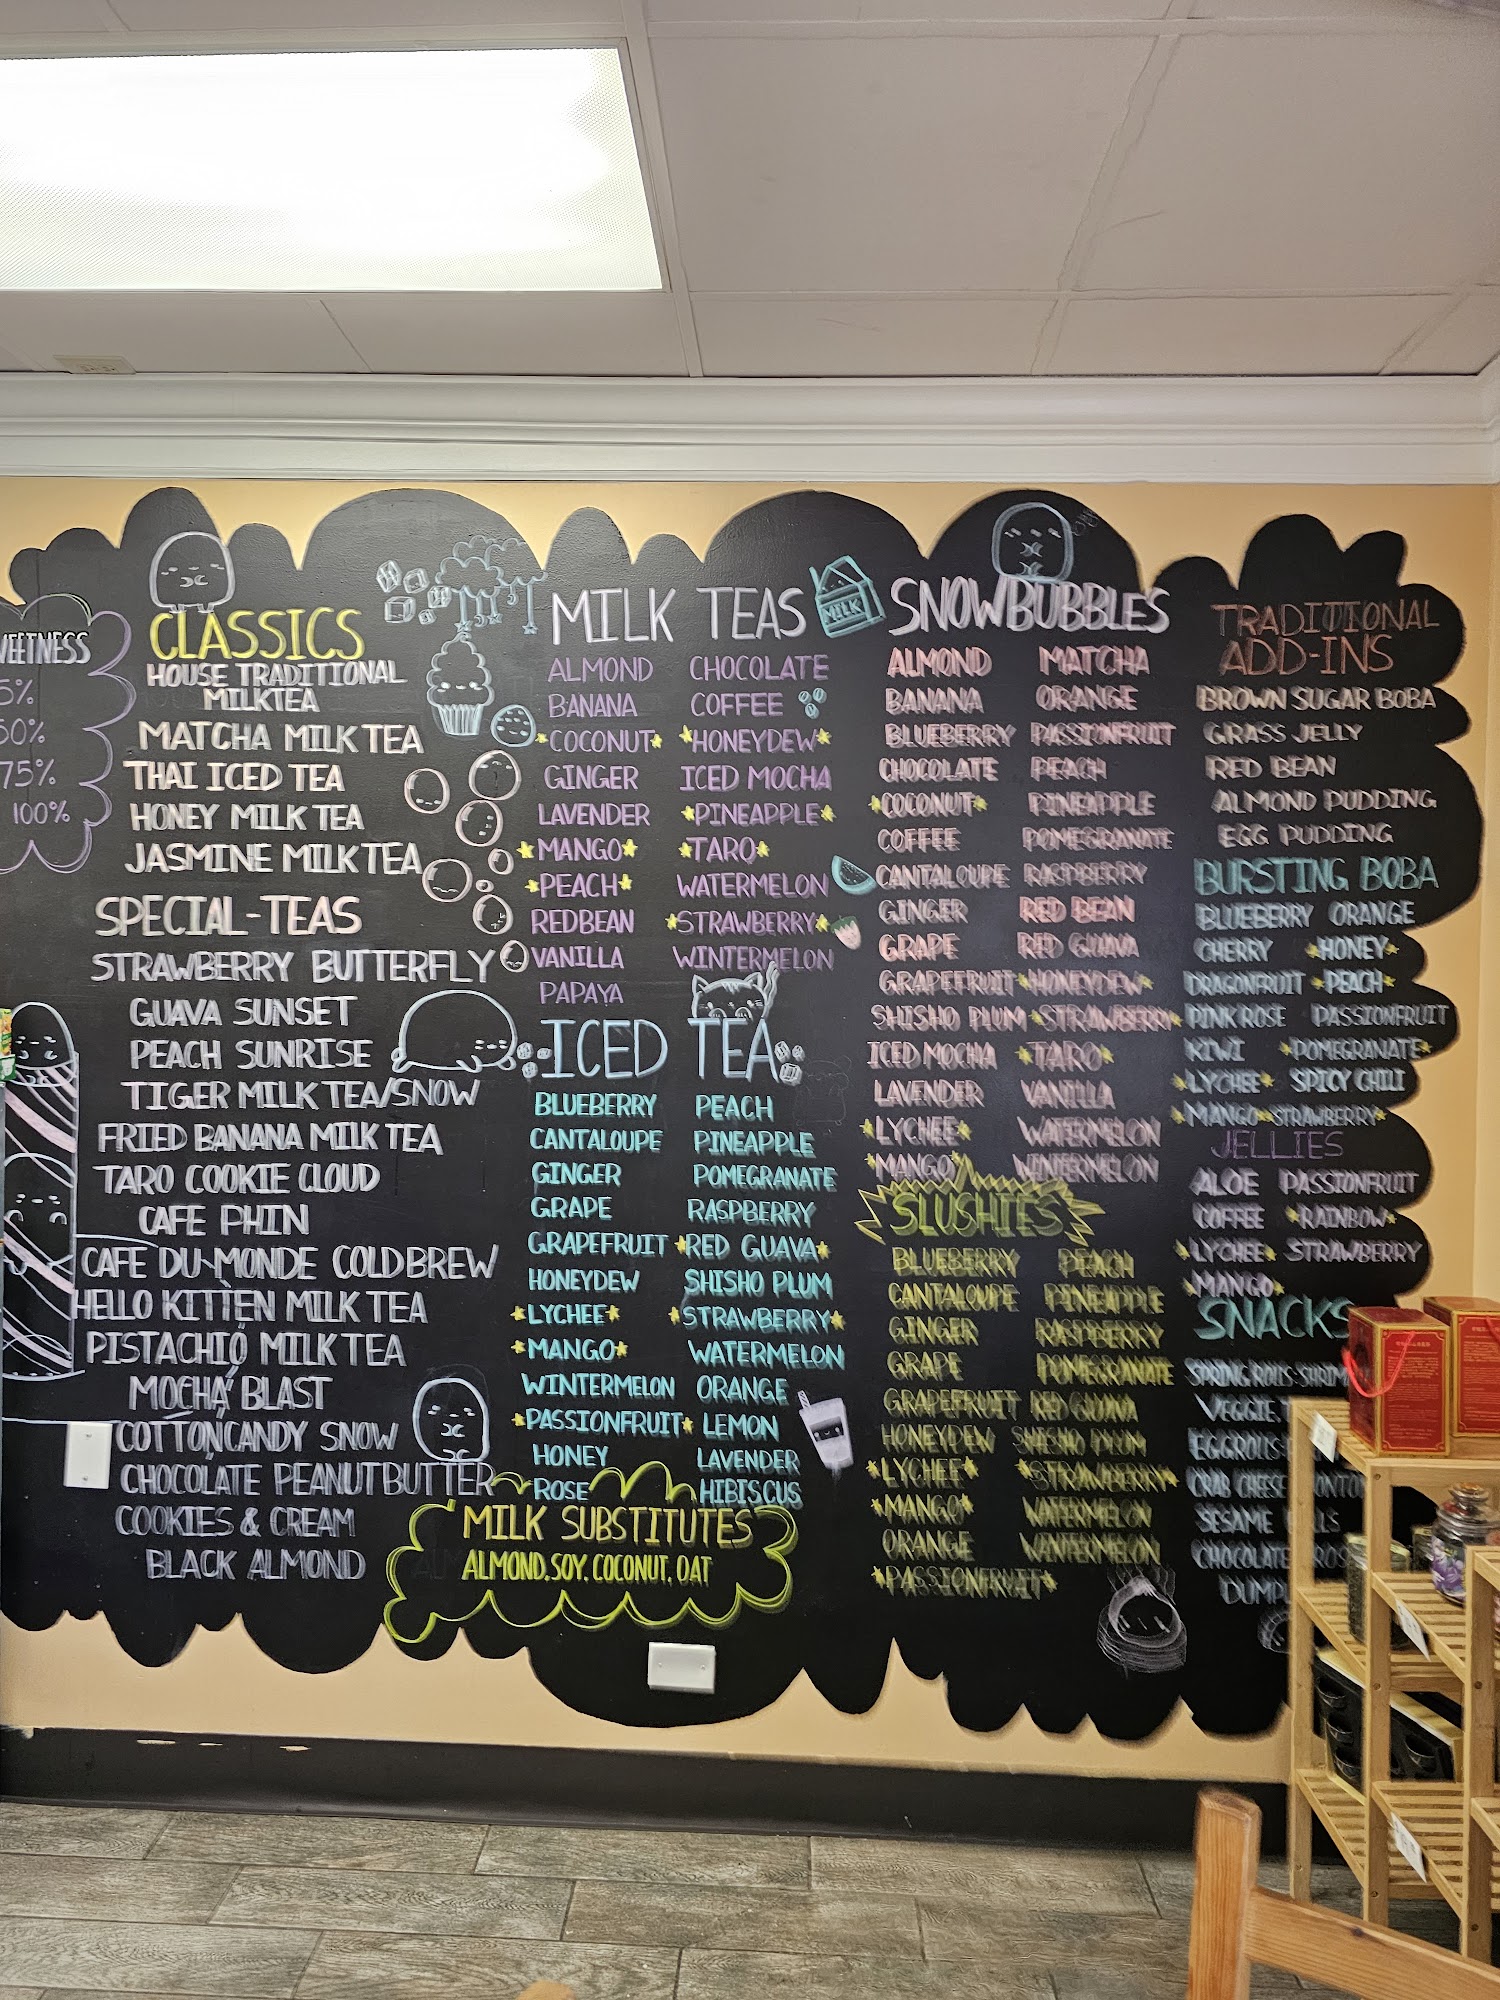 CLASSICS
HOUSE TRADITIONAL
MILKTEA
MATCHA MILK TEA
THAI ICED TEA
HONEY MILK TEA
JASMINE MILK TEA
SPECIAL-TEAS
STRAWBERRY BUTTERFLY
GUAVA SUNSET
PEACH SUNRISE
TIGER MILK TEA/SNOW
FRIED BANANA MILK TEA
TARO COOKIE CLOUD
CAFE PHIN
CAFE DU MONDE COLDBREW
HELLO KITTEN MILK TEA
PISTACHIO MILK TEA
MOCHA BLAST
COTTONCANDY SNOW
CHOCOLATE PEANUTBUTTER
COOKIES & CREAM
BLACK ALMOND
75%
100%
MILK TEAS
MILK
ALMOND CHOCOLATE
BANANA COFFEE
COCONUT HONEYDEW
GINGER ICED MOCHA
LAVENDER PINEAPPLE
MANGO TARO
PEACH WATERMELON
REDBEAN STRAWBERRY
VANILLA WINTERMELON
PAPAYA
ICED TEA
BLUEBERRY PEACH
CANTALOUPE PINEAPPLE
GINGER POMEGRANATE
GRAPE RASPBERRY
GRAPEFRUIT RED GUAVA
HONEYDEW SHISHO PLUM
LYCHEE STRAWBERRY
MANGO WATERMELON
WINTERMELON ORANGE
PASSIONFRUIT LEMON
HONEY LAVENDER
ROSE HIBISCUS
MILK SUBSTITUTES
ALMOND, SOY, COCONUT, OAT
SNOWBUBBLES
ALMOND MATCHA
BANANA ORANGE
BLUEBERRY PASSIONFRUIT
CHOCOLATE PEACH
COCONUT PINEAPPLE
COFFEE POMEGRANATE
CANTALOUPE RASPBERRY
GINGER RED BEAN
GRAPE RED GUAVA
GRAPEFRUIT HONEYDEW
SHISHO PLUM STRAWBERRY
ICED MOCHA TARO
LAVENDER VANILLA
LYCHEE WATERMELON
MANGO WINTERMELON
SLUSHIES
BLUEBERRY PEACH
CANTALOUPE PINEAPPLE
GINGER RASPBERRY
GRAPE POMEGRANATE
GRAPEFRUIT RED GUAVA
HONEYDEW SHISHO PLUM
LYCHEE STRAWBERRY
MANGO WATERMELON
ORANGE WINTERMELON
PASSIONFRUIT
TRADITIONAL
ADD-INS
BROWN SUGAR BOBA
GRASS JELLY
RED BEAN
ALMOND PUDDING
EGG PUDDING
BURSTING BOBA
BLUEBERRY ORANGE
CHERRY HONEY
DRAGONFRUIT PEACH
PINK ROSE PASSIONFRUIT
KIWI POMEGRANATE
LYCHEE SPICY CHILI
MANGO STRAWBERRY
JELLIES
ALOE PASSIONFRUIT
COFFEE RAINBOW
LYCHEE STRAWBERRY
MANGO
SNACKS
SPRING ROLLS:
VEGGIE,
EGGROLLS:
CRAB CHEESE
SESAME
CHOCOLATE